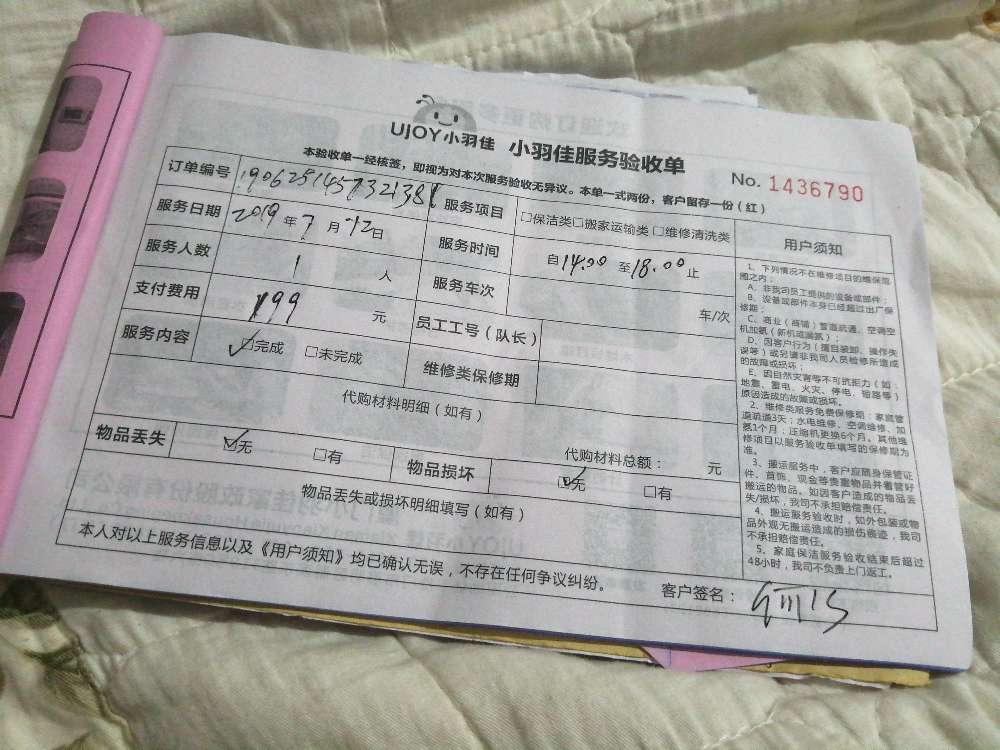 UJOY小羽佳 小羽佳服务验收单
本验收单一经核签，即视为对本次服务验收无异议。本单一式两份，客户留存一份（红）
No. 1436790
订单编号 服务项目 □保洁类□搬家运输类□维修清洗类
服务日期 2019年7月12日 服务时间 自14.00至18.00止
服务人数 1人 服务车次 车/次
支付费用 199元 员工工号（队长）
服务内容 ☑完成 □未完成 维修类保修期
代购材料明细（如有）
代购材料总额： 元
物品丢失 ☑无 □有 物品损坏 ☑无 □有
物品丢失或损坏明细填写（如有）
本人对以上服务信息以及《用户须知》均已确认无误，不存在任何争议纠纷。
客户签名：
用户须知
1、下列情况不在维修项目的维保范
围之内：
A、非我司员工提供的设备或部件；
B、设备或部件本身已经超过出厂保
修期；
C、商业（商铺）管道疏通、空调空
机加氨（新机或漏氨）；
D、因客户行为（擅自装卸、操作失
误等）或另请非我司人员检修所造成
的故障或损坏；
E、因自然灾害等不可抗拒力（如：
地震、雷电、火灾、停电、短路等）
原因造成的故障或损坏。
2、维修类服务免费保修期：家庭管
道疏通3天；水电维修、空调维修、加
氨1个月；压缩机更换6个月。其他维
修项目以服务验收单填写的保修期为
准。
3、搬运服务中，客户应随身保管证
件、首饰、现金等贵重物品并看管好
搬运的物品。如因客户造成的物品丢
失/损坏，我司不承担赔偿责任。
4、搬运服务验收时，如外包装或物
品外观无搬运造成的损伤痕迹，我司
不承担赔偿责任。
5、家庭保洁服务验收结束后超过
48小时，我司不负责上门返工。